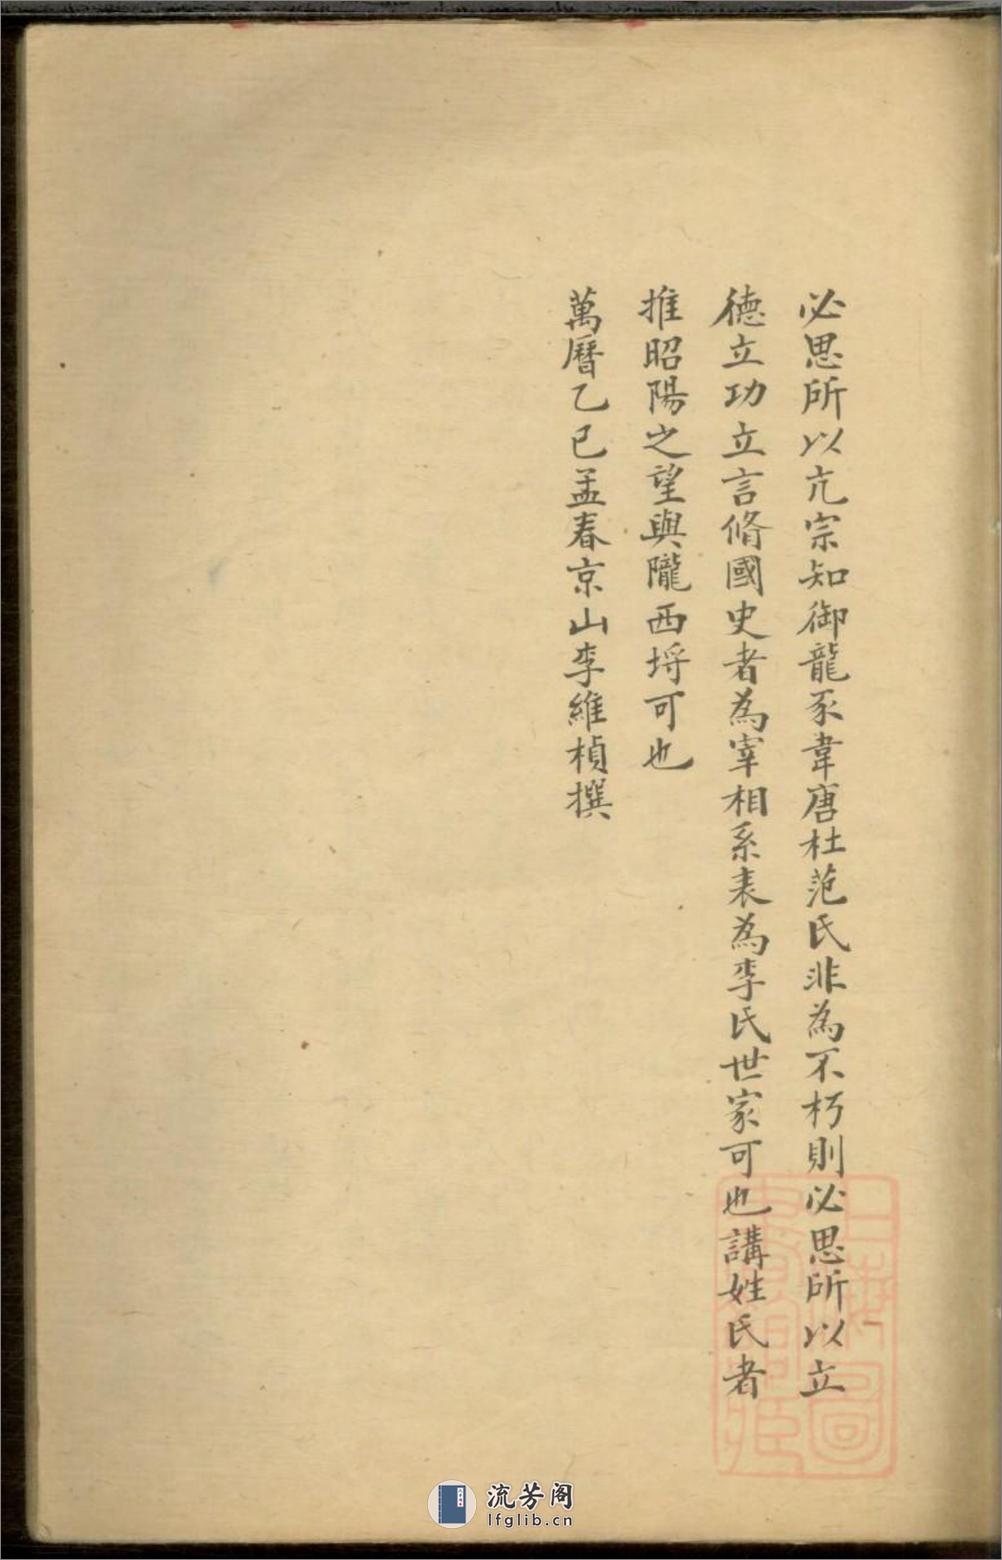 必思所以亢宗知御龍豕韋唐杜范氏非為不朽則必思所以立
德立功立言脩國史者為宰相系表為李氏世家可也講姓氏者
推昭陽之望與隴西埒可也
萬曆乙巳孟春京山李維楨撰
流芳阁
lfglib.cn